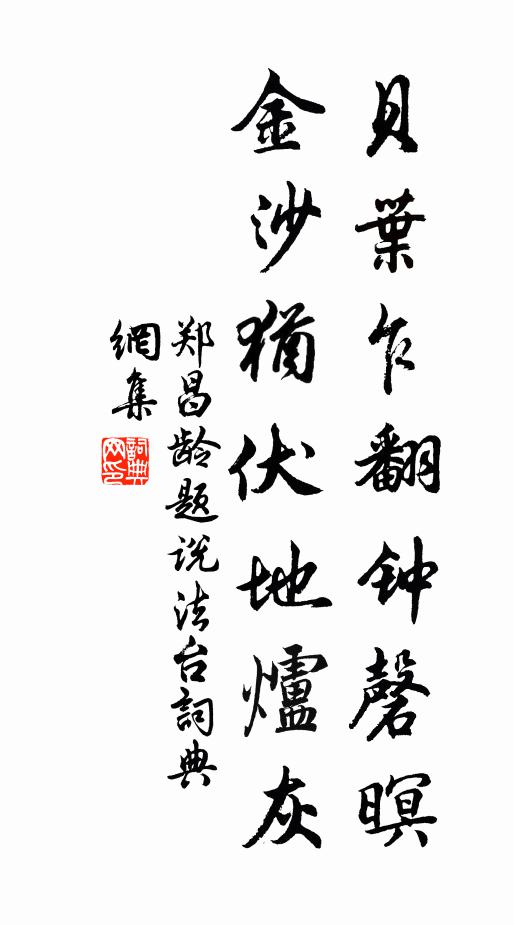 貝葉乍翻钟磬暝
金沙猶伏地爐灰
郑昌龄题说法台詞典
網集
詞典网印